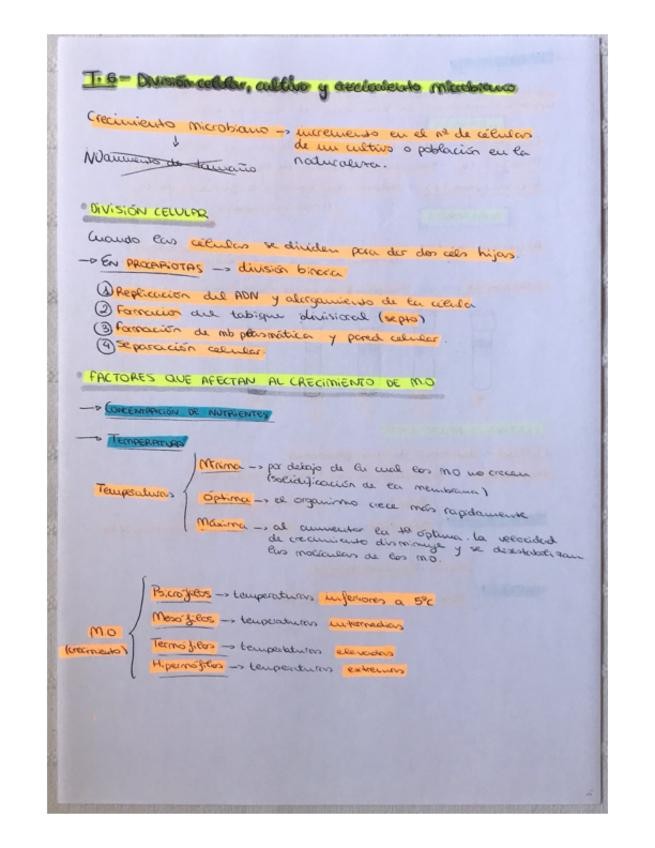 T.6- División celular, cultivo y crecimiento microbiano
Crecimiento microbiano -> incremento en el nº de células
de un cultivo o población en la
naturaleza.
↓
NO aumento de tamaño
• DIVISIÓN CELULAR
Cuando las células se dividen para dar dos céls hijas.
-> EN PROCARIOTAS -> división binaria
① Replicación del ADN y alargamiento de la célula
② Formación del tabique divisional (septo)
③ Formación de mb plasmática y pared celular.
④ Separación celular.
• FACTORES QUE AFECTAN AL CRECIMIENTO DE MO
-> CONCENTRACIÓN DE NUTRIENTES
-> TEMPERATURA
Temperaturas
Mínima -> por debajo de la cual los MO no crecen
(solidificación de la membrana)
Óptima -> el organismo crece más rapidamente
Máxima -> al aumentar la tª óptima. la velocidad
de crecimiento disminuye y se desestabilizan
las moléculas de los MO.
MO
(crecimiento)
Psicrófilos -> temperaturas inferiores a 5ºC
Mesófilos -> temperaturas intermedias
Termófilos -> temperaturas elevadas
Hipermófilos -> temperaturas extremas